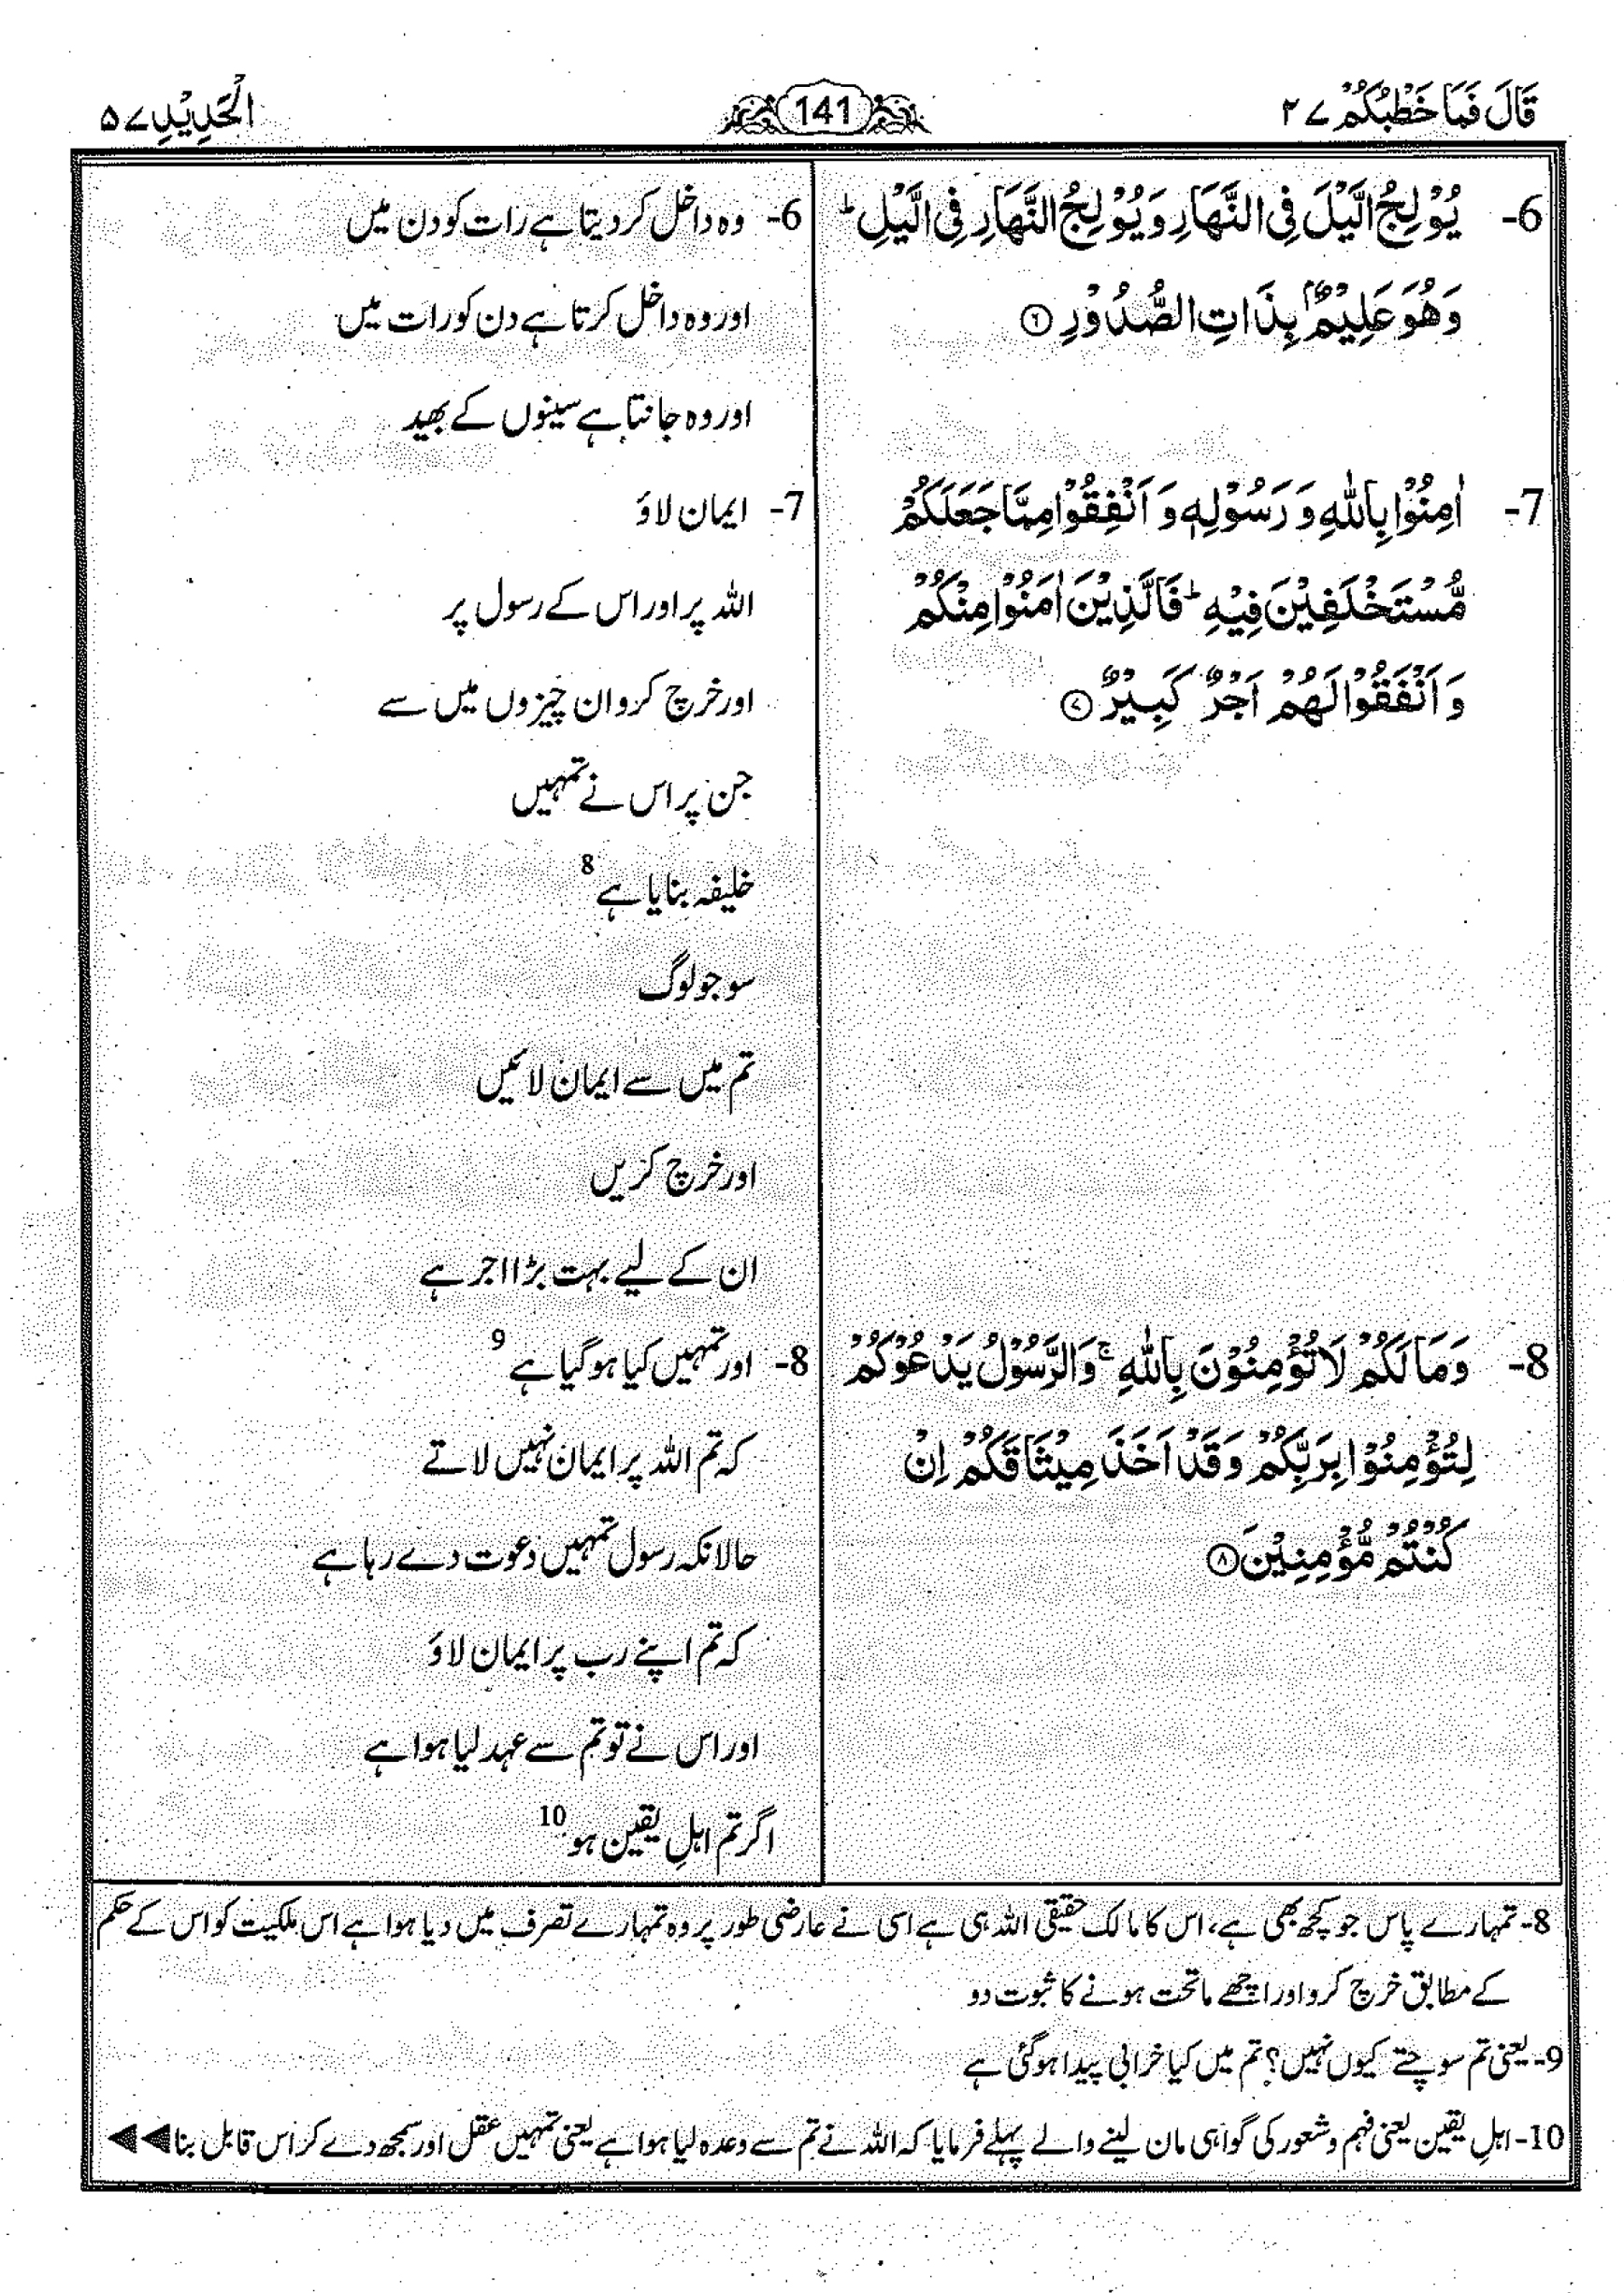 قَالَ فَمَا خَطْبُكُمْ ٢٧
141
الْحَدِيْدِ ٥٧
6- يُوْلِجُ الَّيْلَ فِى النَّهَارِ وَيُوْلِجُ النَّهَارَ فِى الَّيْلِ ؕ
وَهُوَ عَلِيْمٌۢ بِذَاتِ الصُّدُوْرِ ۝۶
7- اٰمِنُوْا بِاللّٰهِ وَ رَسُوْلِهٖ وَ اَنْفِقُوْا مِمَّا جَعَلَكُمْ
مُّسْتَخْلَفِيْنَ فِيْهِ ؕ فَالَّذِيْنَ اٰمَنُوْا مِنْكُمْ
وَ اَنْفَقُوْا لَهُمْ اَجْرٌ كَبِيْرٌ ۝۷
8- وَمَا لَكُمْ لَا تُؤْمِنُوْنَ بِاللّٰهِ ۚ وَالرَّسُوْلُ يَدْعُوْكُمْ
لِتُؤْمِنُوْا بِرَبِّكُمْ وَقَدْ اَخَذَ مِيْثَاقَكُمْ اِنْ
كُنْتُمْ مُّؤْمِنِيْنَ ۝۸
6- وہ داخل کر دیتا ہے رات کو دن میں
اور وہ داخل کرتا ہے دن کو رات میں
اور وہ جانتا ہے سینوں کے بھید
7- ایمان لاؤ
اللہ پر اور اس کے رسول پر
اور خرچ کرو ان چیزوں میں سے
جن پر اس نے تمہیں
خلیفہ بنایا ہے 8
سو جو لوگ
تم میں سے ایمان لائیں
اور خرچ کریں
ان کے لیے بہت بڑا اجر ہے
8- اور تمہیں کیا ہو گیا ہے 9
کہ تم اللہ پر ایمان نہیں لاتے
حالانکہ رسول تمہیں دعوت دے رہا ہے
کہ تم اپنے رب پر ایمان لاؤ
اور اس نے تو تم سے عہد لیا ہوا ہے
اگر تم اہلِ یقین ہو 10
8- تمہارے پاس جو کچھ بھی ہے، اس کا مالک حقیقی اللہ ہی ہے اسی نے عارضی طور پر وہ تمہارے تصرف میں دیا ہوا ہے اس ملکیت کو اس کے حکم
کے مطابق خرچ کرو اور اچھے ماتحت ہونے کا ثبوت دو
9- یعنی تم سوچتے کیوں نہیں؟ تم میں کیا خرابی پیدا ہو گئی ہے
10- اہلِ یقین یعنی فہم و شعور کی گواہی مان لینے والے پہلے فرمایا کہ اللہ نے تم سے وعدہ لیا ہوا ہے یعنی تمہیں عقل اور سمجھ دے کر اس قابل بنا ◀◀